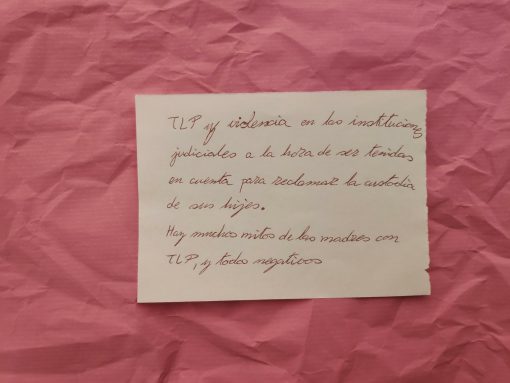 TLP y violencia en las instituciones
judiciales a la hora de ser tenidas
en cuenta para reclamar la custodia
de sus hijes.
Hay muchos mitos de las madres con
TLP, y todos negativos